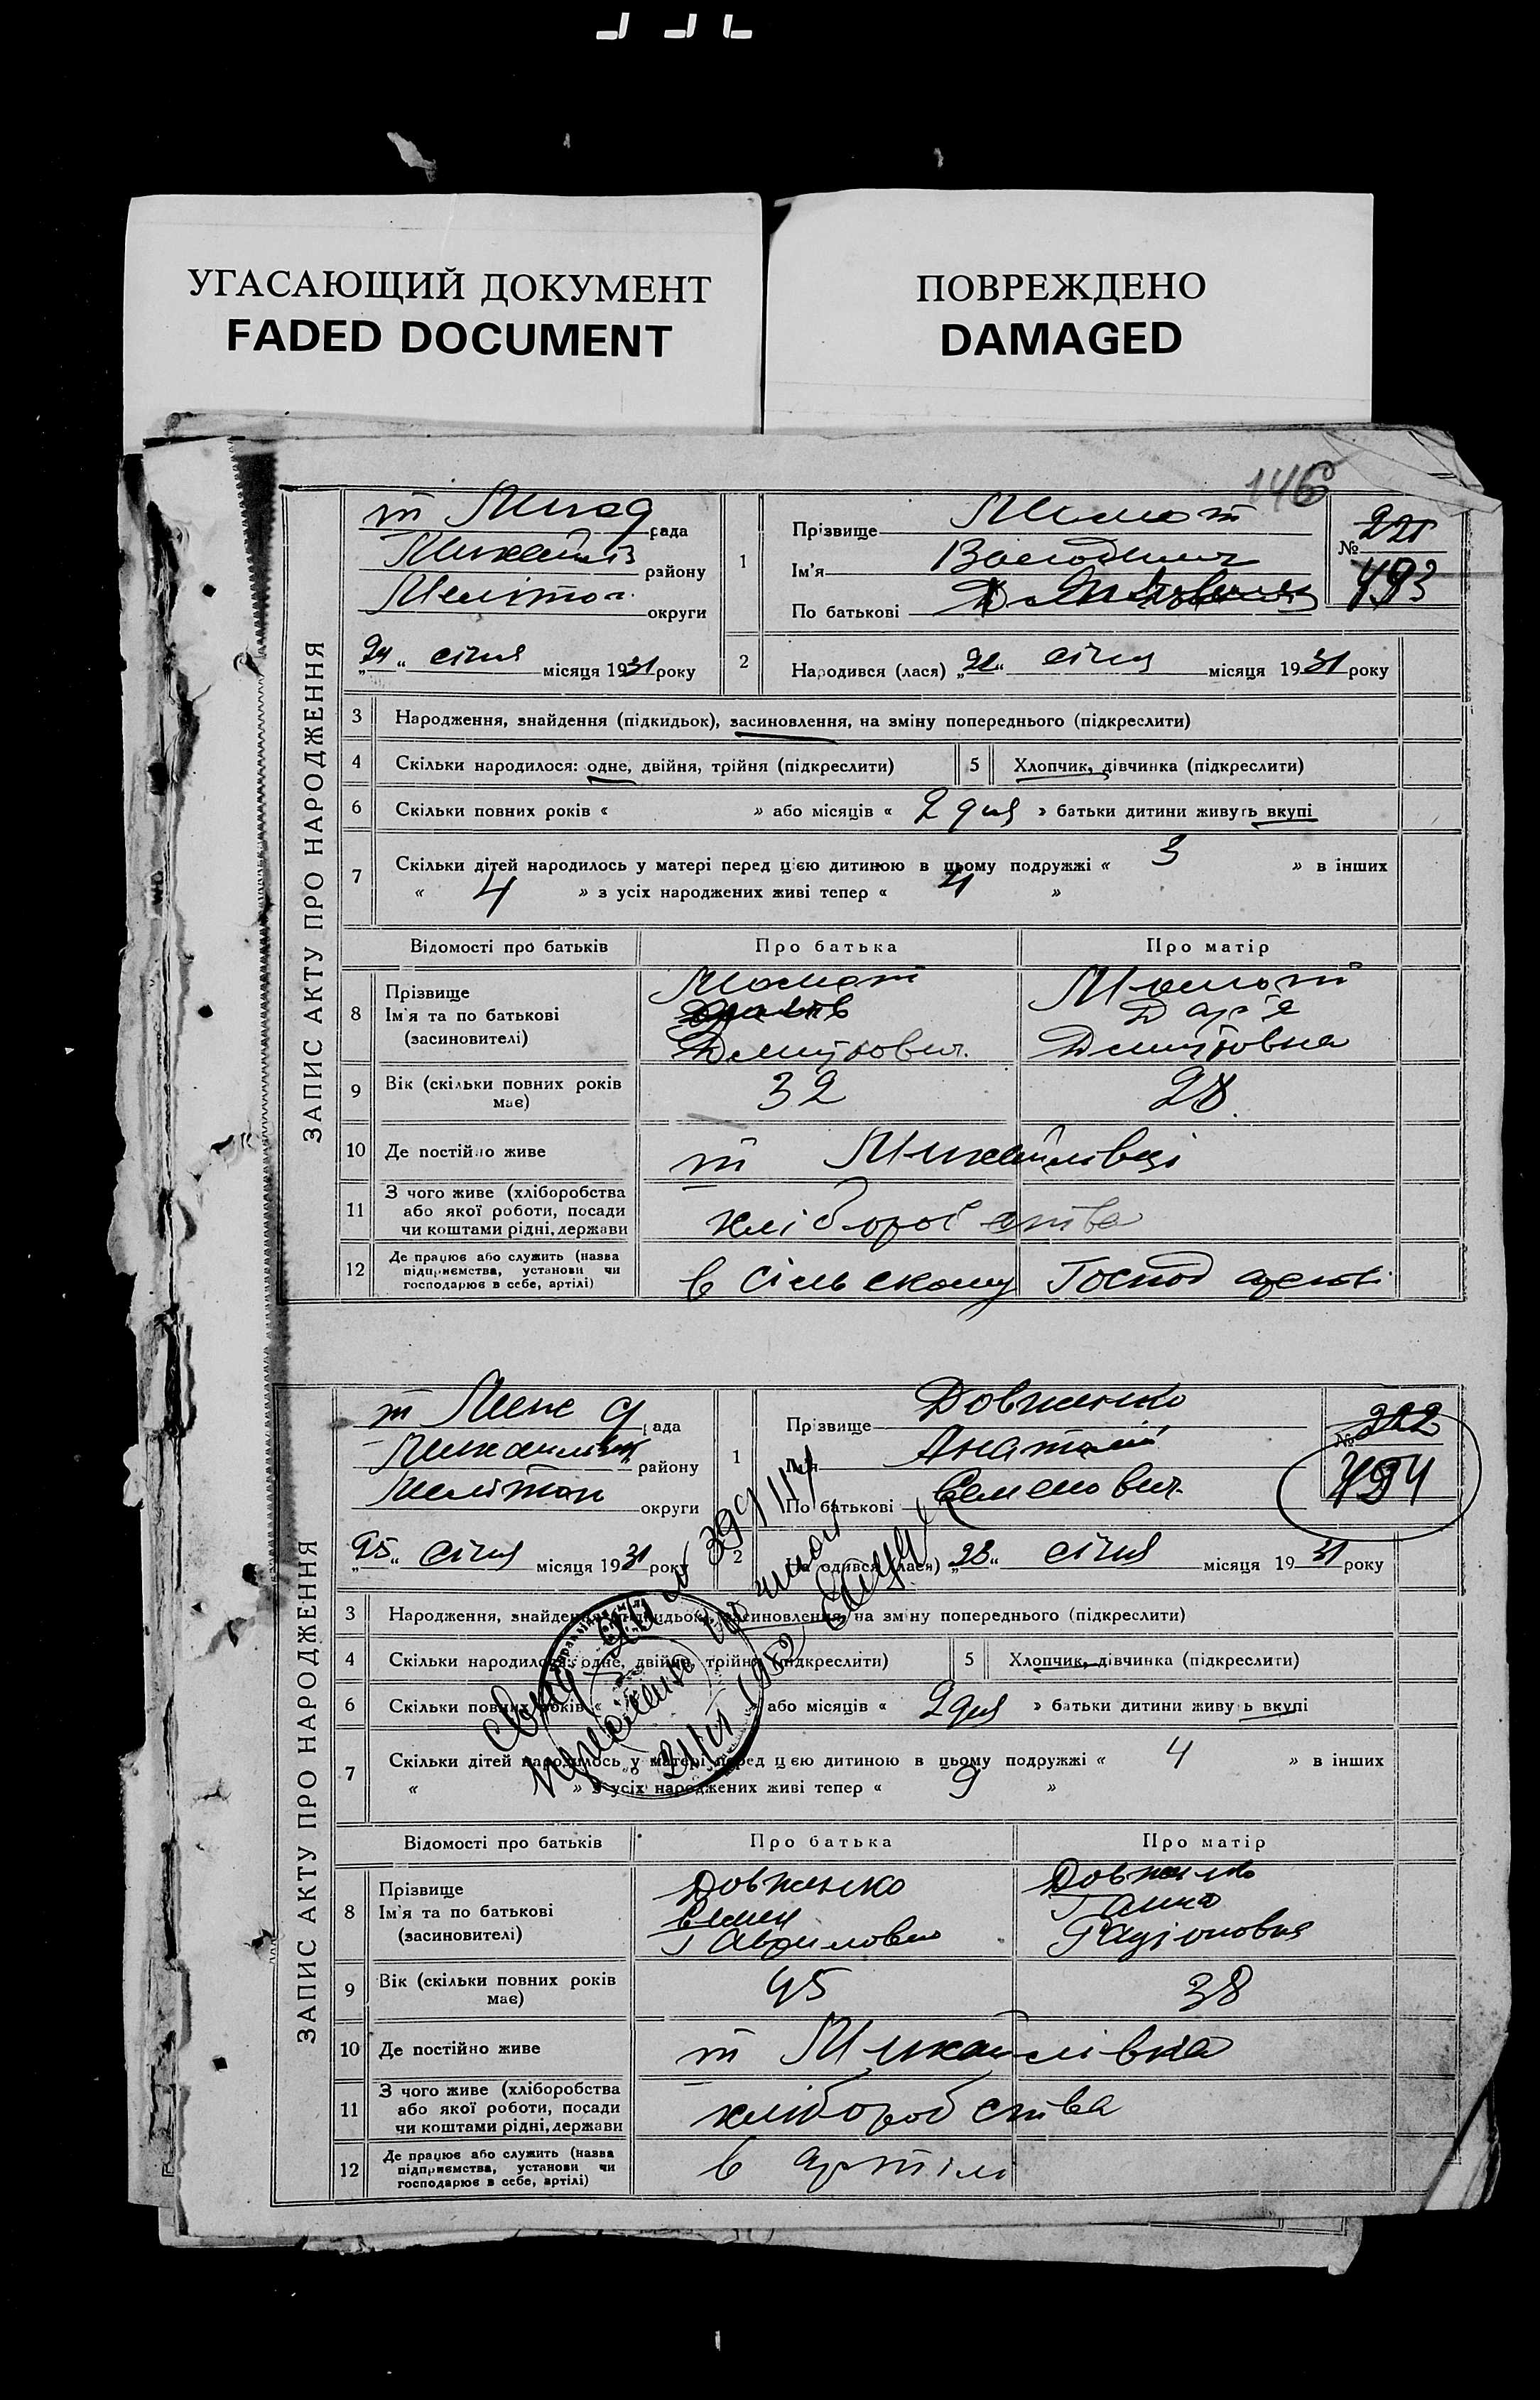 УГАСАЮЩИЙ ДОКУМЕНТ
FADED DOCUMENT
ПОВРЕЖДЕНО
DAMAGED
146
ЗАПИС АКТУ ПРО НАРОДЖЕННЯ
рада
району
округи
24 „ січня місяця 1931 року
1
Прізвище
Ім'я
По батькові
№ 221
493
2 Народився (лася) „ “ січня місяця 1931 року
3 Народження, знайдення (підкидьок), засиновлення, на зміну попереднього (підкреслити)
4 Скільки народилося: одне, двійня, трійня (підкреслити)
5 Хлопчик, дівчинка (підкреслити)
6 Скільки повних років « » або місяців « 2 дня » батьки дитини живуть вкупі
7 Скільки дітей народилось у матері перед цією дитиною в цьому подружжі « 3 » в інших
« 4 » з усіх народжених живі тепер « 4 »
Відомості про батьків Про батька Про матір
8 Прізвище
Ім'я та по батькові
(засиновителі)
Дмитрович.
Дар'я
Дмитровна
9 Вік (скільки повних років має) 32 28
10 Де постійно живе т Михайлівці
11 З чого живе (хліборобства або якої роботи, посади чи коштами рідні, держави хліборобства
12 Де працює або служить (назва підприємства, установи чи господарює в себе, артілі) в сільскому
ЗАПИС АКТУ ПРО НАРОДЖЕННЯ
рада
району
округи
25 „ січня місяця 1931 року
1
Прізвище Довженко
Ім'я Анатолій
По батькові Семенович
№ 222
494
2 Народився (лася) „23“ січня місяця 1931 року
3 Народження, знайдення (підкидьок), засиновлення, на зміну попереднього (підкреслити)
4 Скільки народилося: одне, двійня, трійня (підкреслити)
5 Хлопчик, дівчинка (підкреслити)
6 Скільки повних років « » або місяців « 2 дня » батьки дитини живуть вкупі
7 Скільки дітей народилось у матері перед цією дитиною в цьому подружжі « 4 » в інших
« » з усіх народжених живі тепер « 9 »
Відомості про батьків Про батька Про матір
8 Прізвище
Ім'я та по батькові
(засиновителі)
Довженко
Семен
Гаврилович
Довженко
Ганна
Радіоновна
9 Вік (скільки повних років має) 45 38
10 Де постійно живе т Михайлівка
11 З чого живе (хліборобства або якої роботи, посади чи коштами рідні, держави хліборобства
12 Де працює або служить (назва підприємства, установи чи господарює в себе, артілі) в артілі